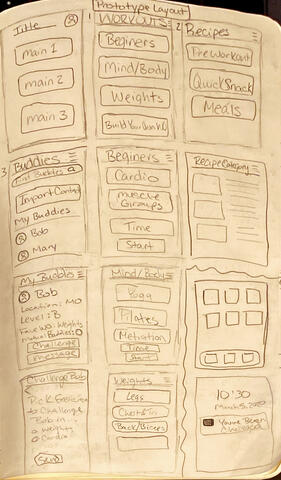 Prototype Layout
Title
main 1
main 2
main 3
1
WORKOUTS
Beginers
Mind/Body
Weights
Build Your Own
2
Recipes
Pre Workout
Quick Snack
Meals
3
Buddies
Find Buddies
Import Contact
My Buddies
Bob
Mary
Beginers
Cardio
muscle
Groups
Time
Start
Recipe Category
My Buddies
Bob
Location: MO
Level: 8
Fave Wo: Weights
Mutual Buddies: 0
Challenge
message
Mind/Body
Yoga
Pilates
Metivation
Time
Start
Challenge Bob
Pick Exercise
to Challenge
Bob in...
Weights
Cardio
Send
Weights
Legs
Chest
Back/Biceps
10:30
You've Been
Challenged